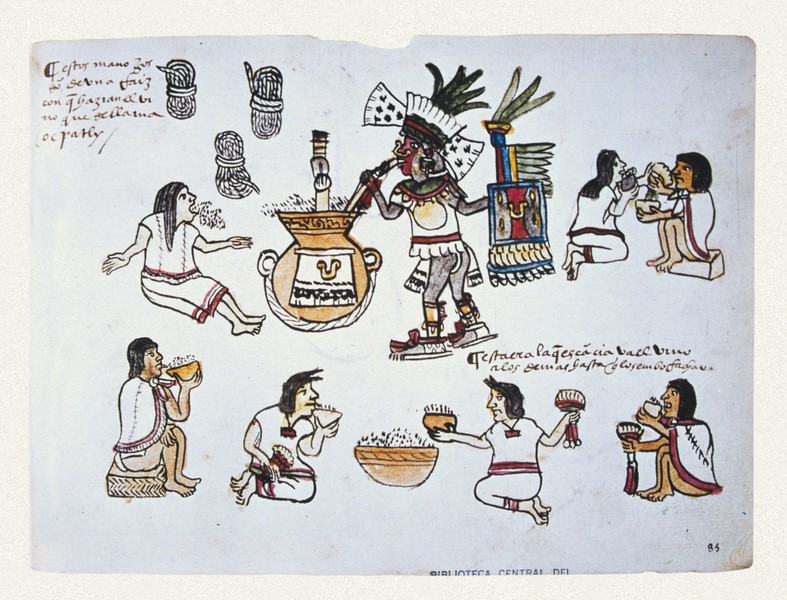 estos manojos
so de una faiz
con q̄ hazian el vi
no que se llama
ocpatly /
esta era la q̄ escācia va el vino
a los demas hasta q̄ los embofachava
85
BIBLIOTECA CENTRAL DEL